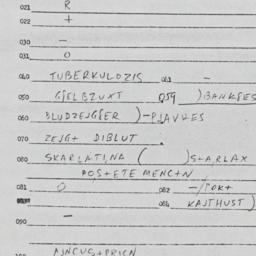 021 R
022 +
030 —
031 O
040 TUBERKULOZIS 041 —
050 GIELBZUXT 059 )BANKIES
060 BLUDZEJGIER )-PJAVKES
070 ZEJG+ DIBLUT.
080 SKARLATINA ( )S+ARLAX
POS+ETEMENC+N
081 O 082 —/POK+
084 KAJTHUST)
090 —